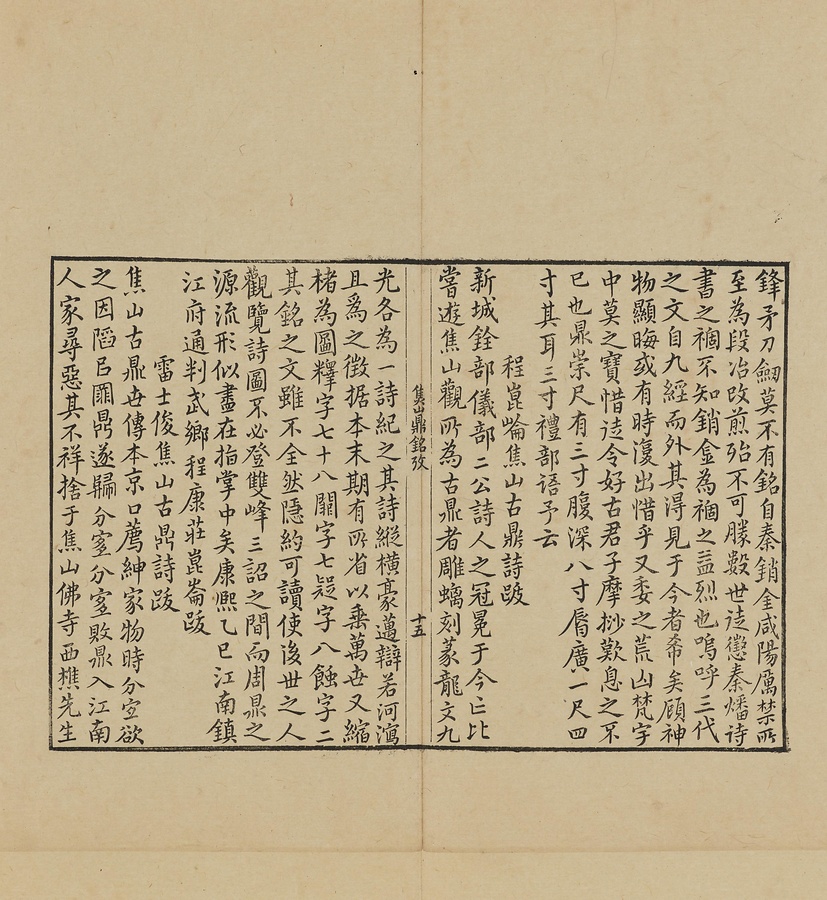 鋒矛刀劒莫不有銘自秦銷金咸陽厲禁所
至為段冶改煎殆不可勝數世徒懲秦燔詩
書之禍不知銷金為禍之益烈也嗚呼三代
之文自九經而外其得見于今者希矣顧神
物顯晦或有時復出惜乎又委之荒山梵宇
中莫之寶惜徒令好古君子摩挱歎息之不
已也鼎崇尺有三寸腹深八寸脣廣一尺四
寸其耳三寸禮部語予云
程崑崙焦山古鼎詩跋
新城銓部儀部二公詩人之冠冕于今亡比
嘗遊焦山觀所為古鼎者雕螭刻篆龍文九
焦山鼎銘攷
十五
光各為一詩紀之其詩縱橫豪邁辯若河瀉
且為之徵据本末期有所省以垂萬世又縮
楮為圖釋字七十八闕字七疑字八蝕字二
其銘之文雖不全然隱約可讀使後世之人
觀覽詩圖不必登雙峰三詔之間而周鼎之
源流形似盡在指掌中矣康熙乙巳江南鎮
江府通判武鄉程康莊崑崙跋
雷士俊焦山古鼎詩跋
焦山古鼎世傳本京口薦紳家物時分宜欲
之因謟㠯罪鼎遂歸分宜分宜敗鼎入江南
人家尋惡其不祥捨于焦山佛寺西樵先生